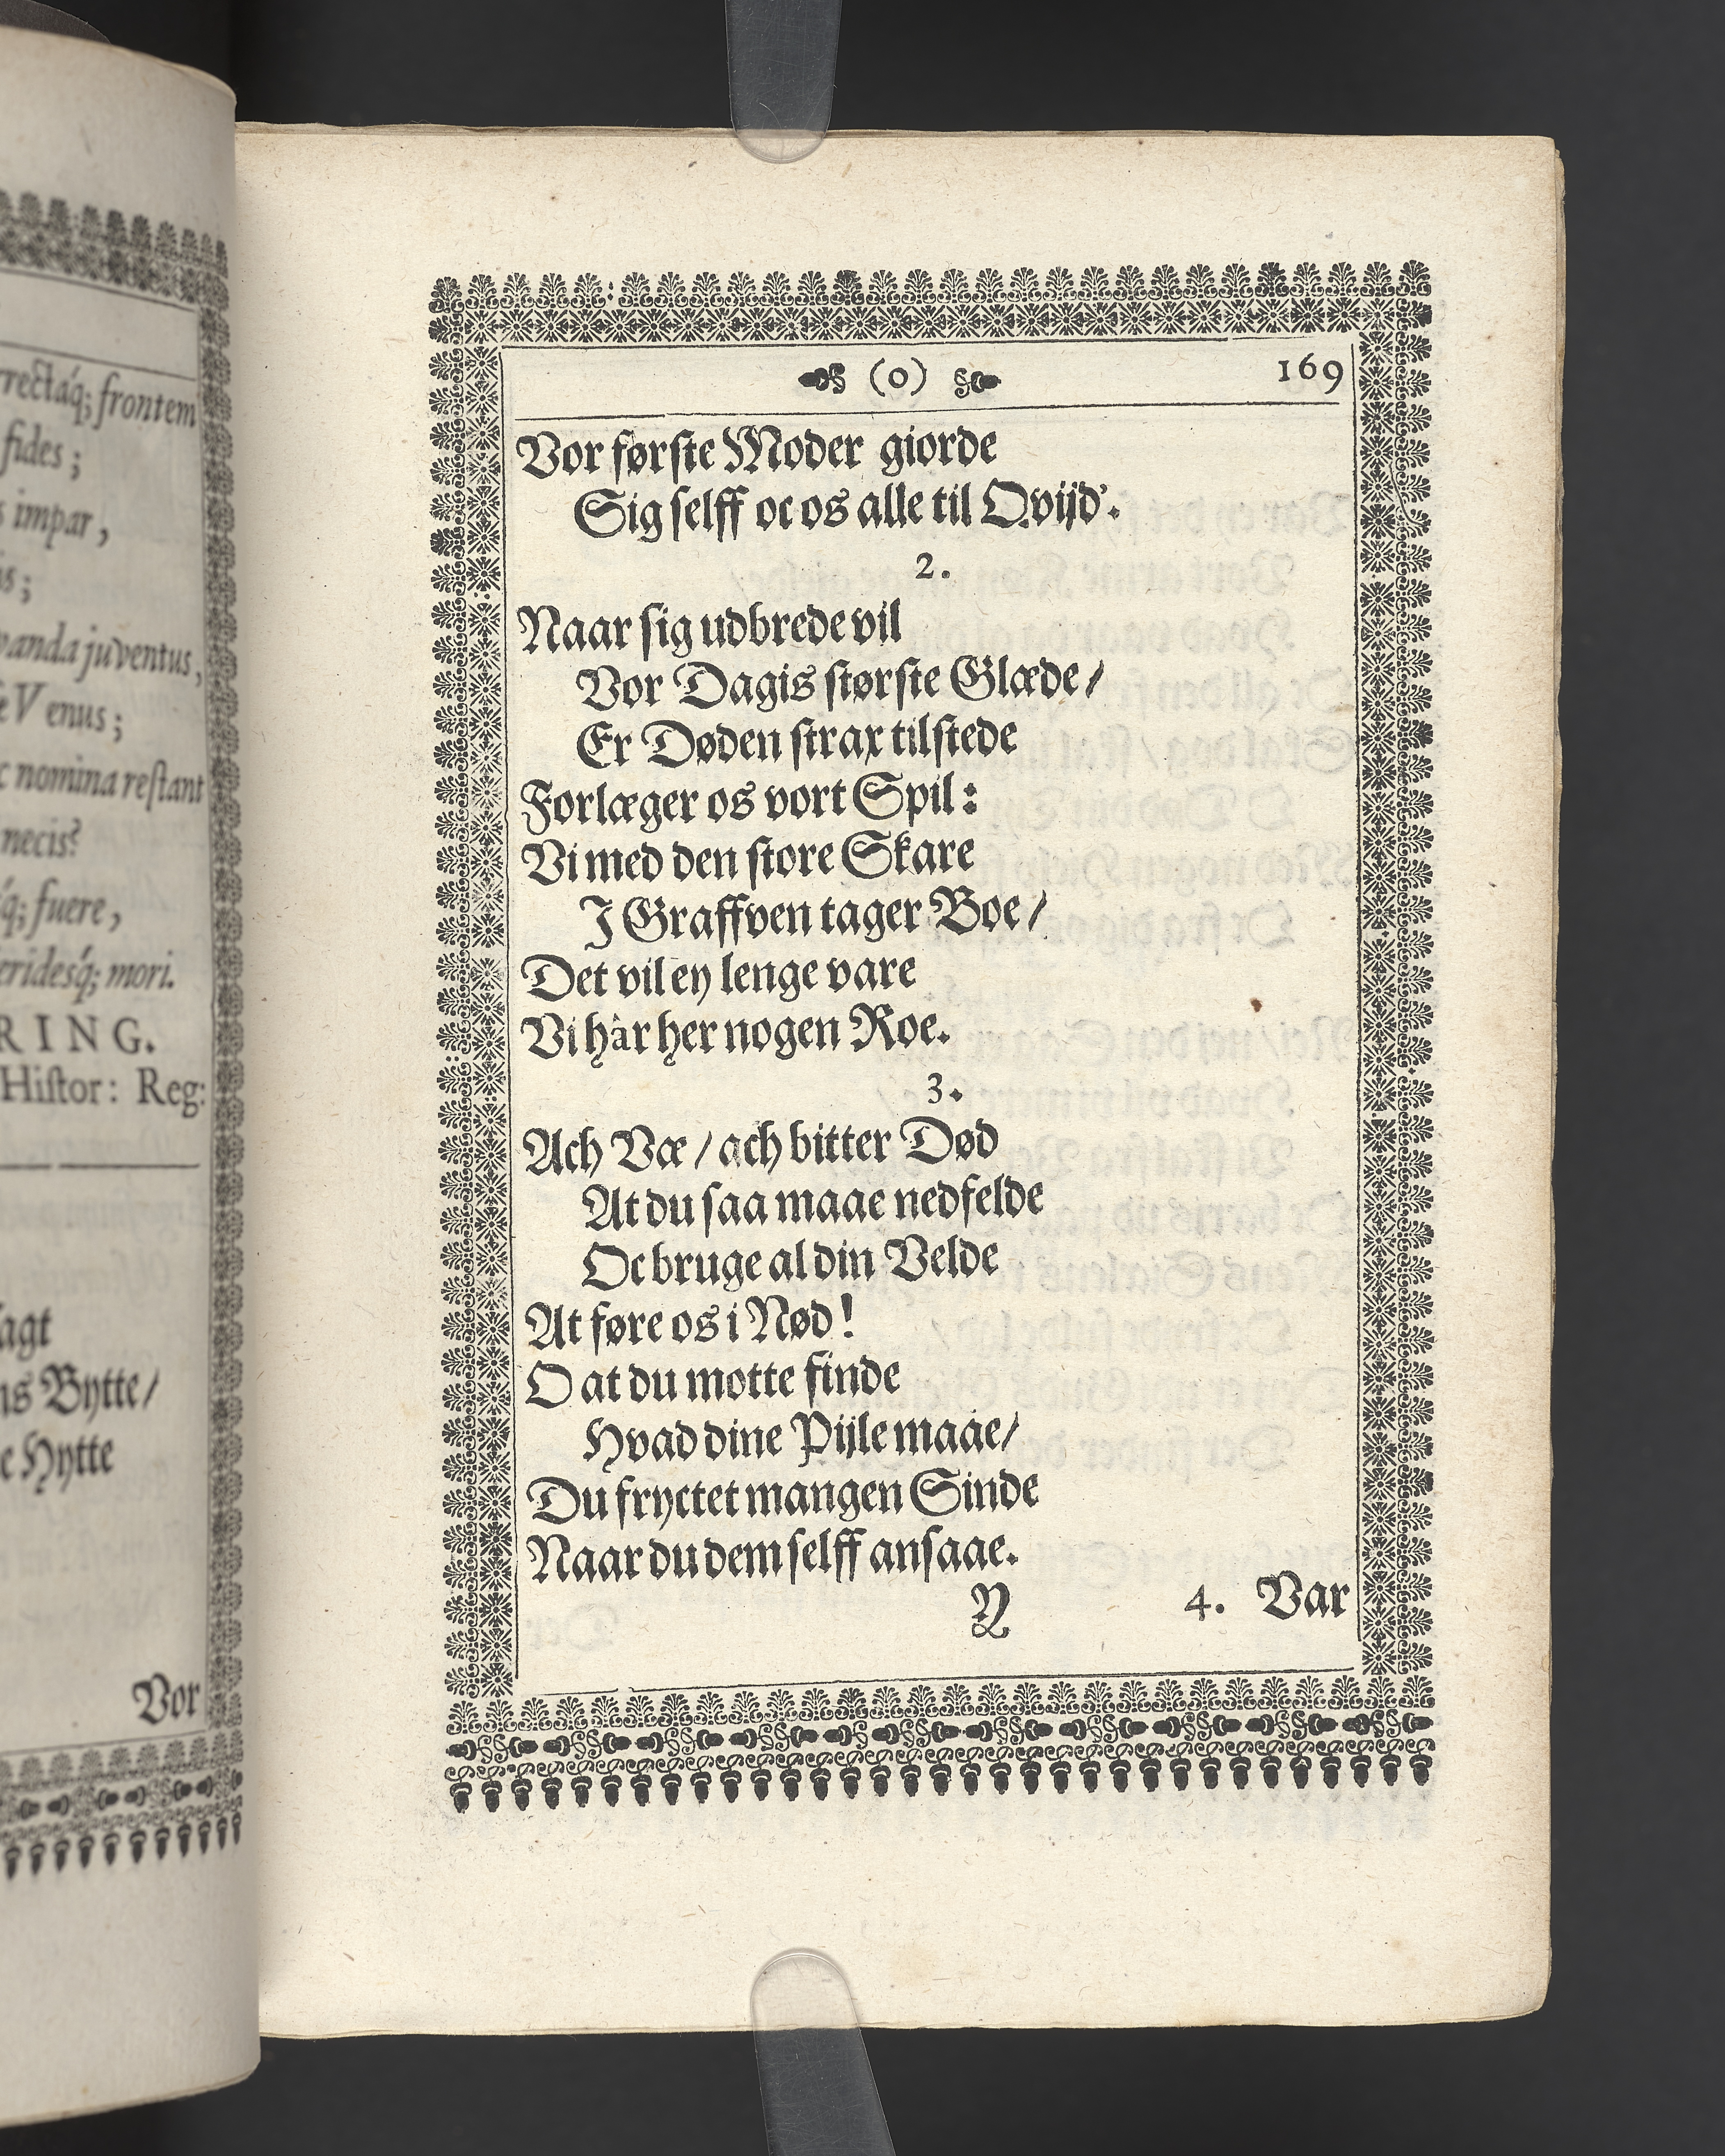 rrectáq; frontem
fides;
impar,
s;
vanda juventus,
Venus;
c nomina restant
necis?
q; fuere,
eridesq́; mori.
RING.
Histor: Reg:
agt
ns Bytte/
e Hytte
Vor
(0) 169
Vor første Moder giorde
Sig selff oc os alle til Qvijd'.
2.
Naar sig udbrede vil
Vor Dagis største Glæde/
Er Døden strax tilstede
Forlæger os vort Spil:
Vi med den store Skare
I Graffven tager Boe/
Det vil ey lenge vare
Vi hâr her nogen Roe.
3.
Ach Væ/ ach bitter Død
At du saa maae nedfelde
Oc bruge al din Velde
At føre os i Nød!
O at du motte finde
Hvad dine Pijle maae/
Du fryctet mangen Sinde
Naar du dem selff ansaae.
Y 4. Var